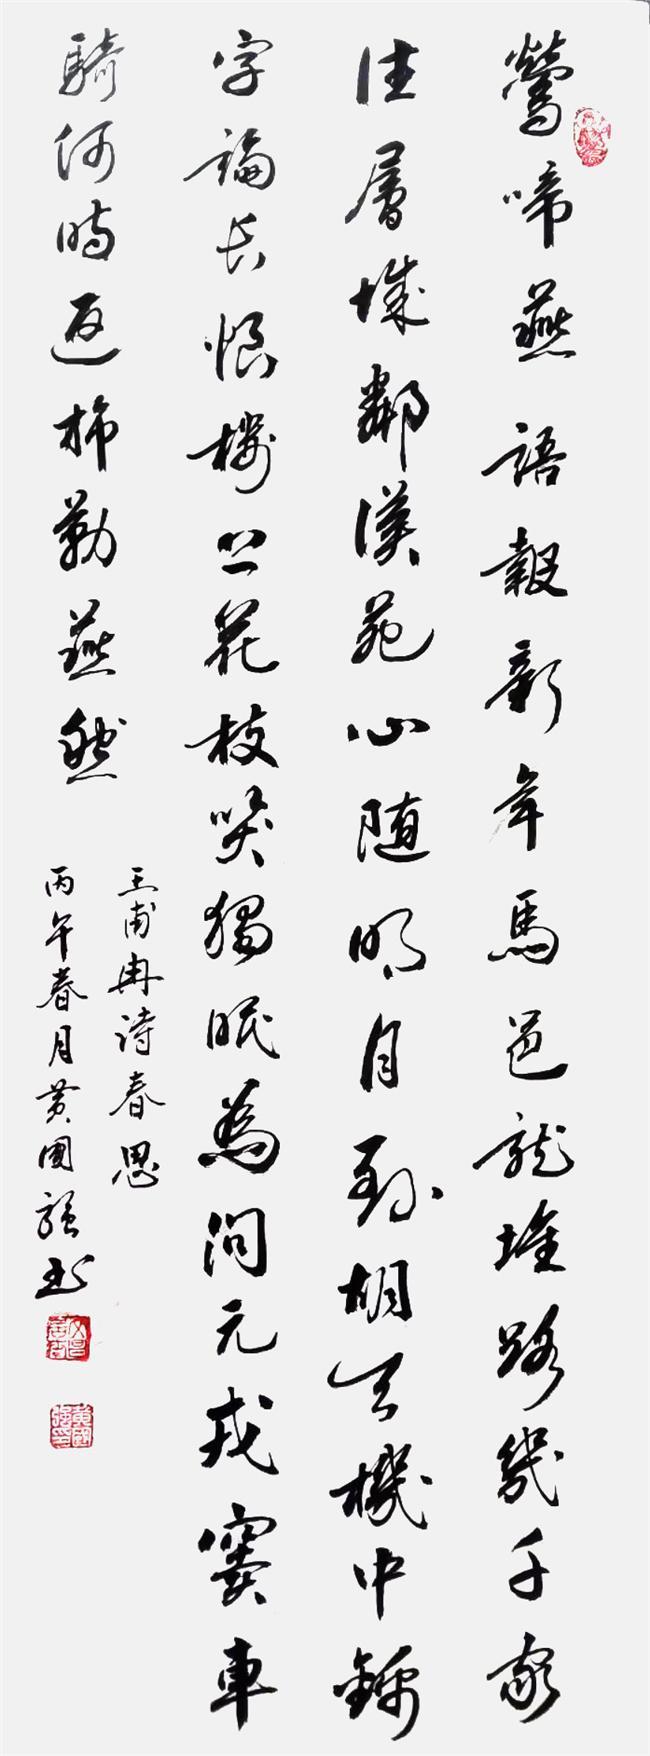 鶯啼燕語報新年馬邑龍堆路幾千家
住層城鄰漢苑心随明月到胡天機中錦
字論長恨樓上花枝咲獨眠為問元戎竇車
騎何時返旆勒燕然
王甫冉詩春思
丙午春月黄國强书